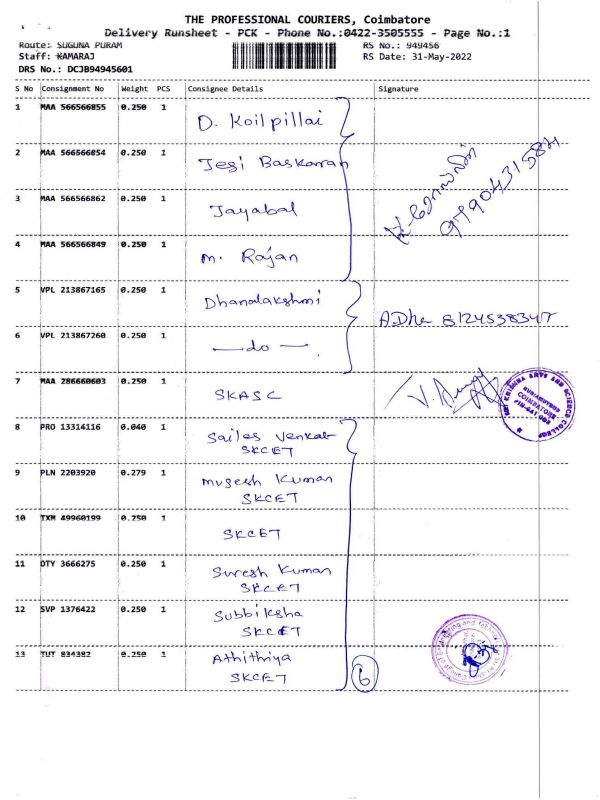 THE PROFESSIONAL COURIERS, Coimbatore
Delivery Runsheet - PCK - Phone No.:0422-3505555 - Page No.:1
Route: SUGUNA PURAM RS No.: 949456
Staff: KAMARAJ RS Date: 31-May-2022
DRS No.: DCJB94945601
S No Consignment No Weight PCS Consignee Details Signature
1 MAA 566566855 0.250 1 D. Koilpillai
2 MAA 566566854 0.250 1 Jesi Baskaran
3 MAA 566566862 0.250 1 Jayabal
9790431584
4 MAA 566566849 0.250 1 M. Rajan
5 VPL 213867165 0.250 1 Dhanalakshmi
ADhe 8124538347
6 VPL 213867260 0.250 1 —do—
7 MAA 286660603 0.250 1 SKASC
SRI KRISHNA ARTS AND SCIENCE COLLEGE
COIMBATORE
8 PRO 13314116 0.040 1 Sailes Venkat
SKCET
9 PLN 2203920 0.279 1 Mugesh Kumar
SKCET
10 TXM 49960199 0.250 1 SKCET
11 OTY 3666275 0.250 1 Suresh Kumar
SKCET
12 SVP 1376422 0.250 1 Subbiksha
SKCET
13 TUT 834382 0.250 1 Athithiya
SKCET
6